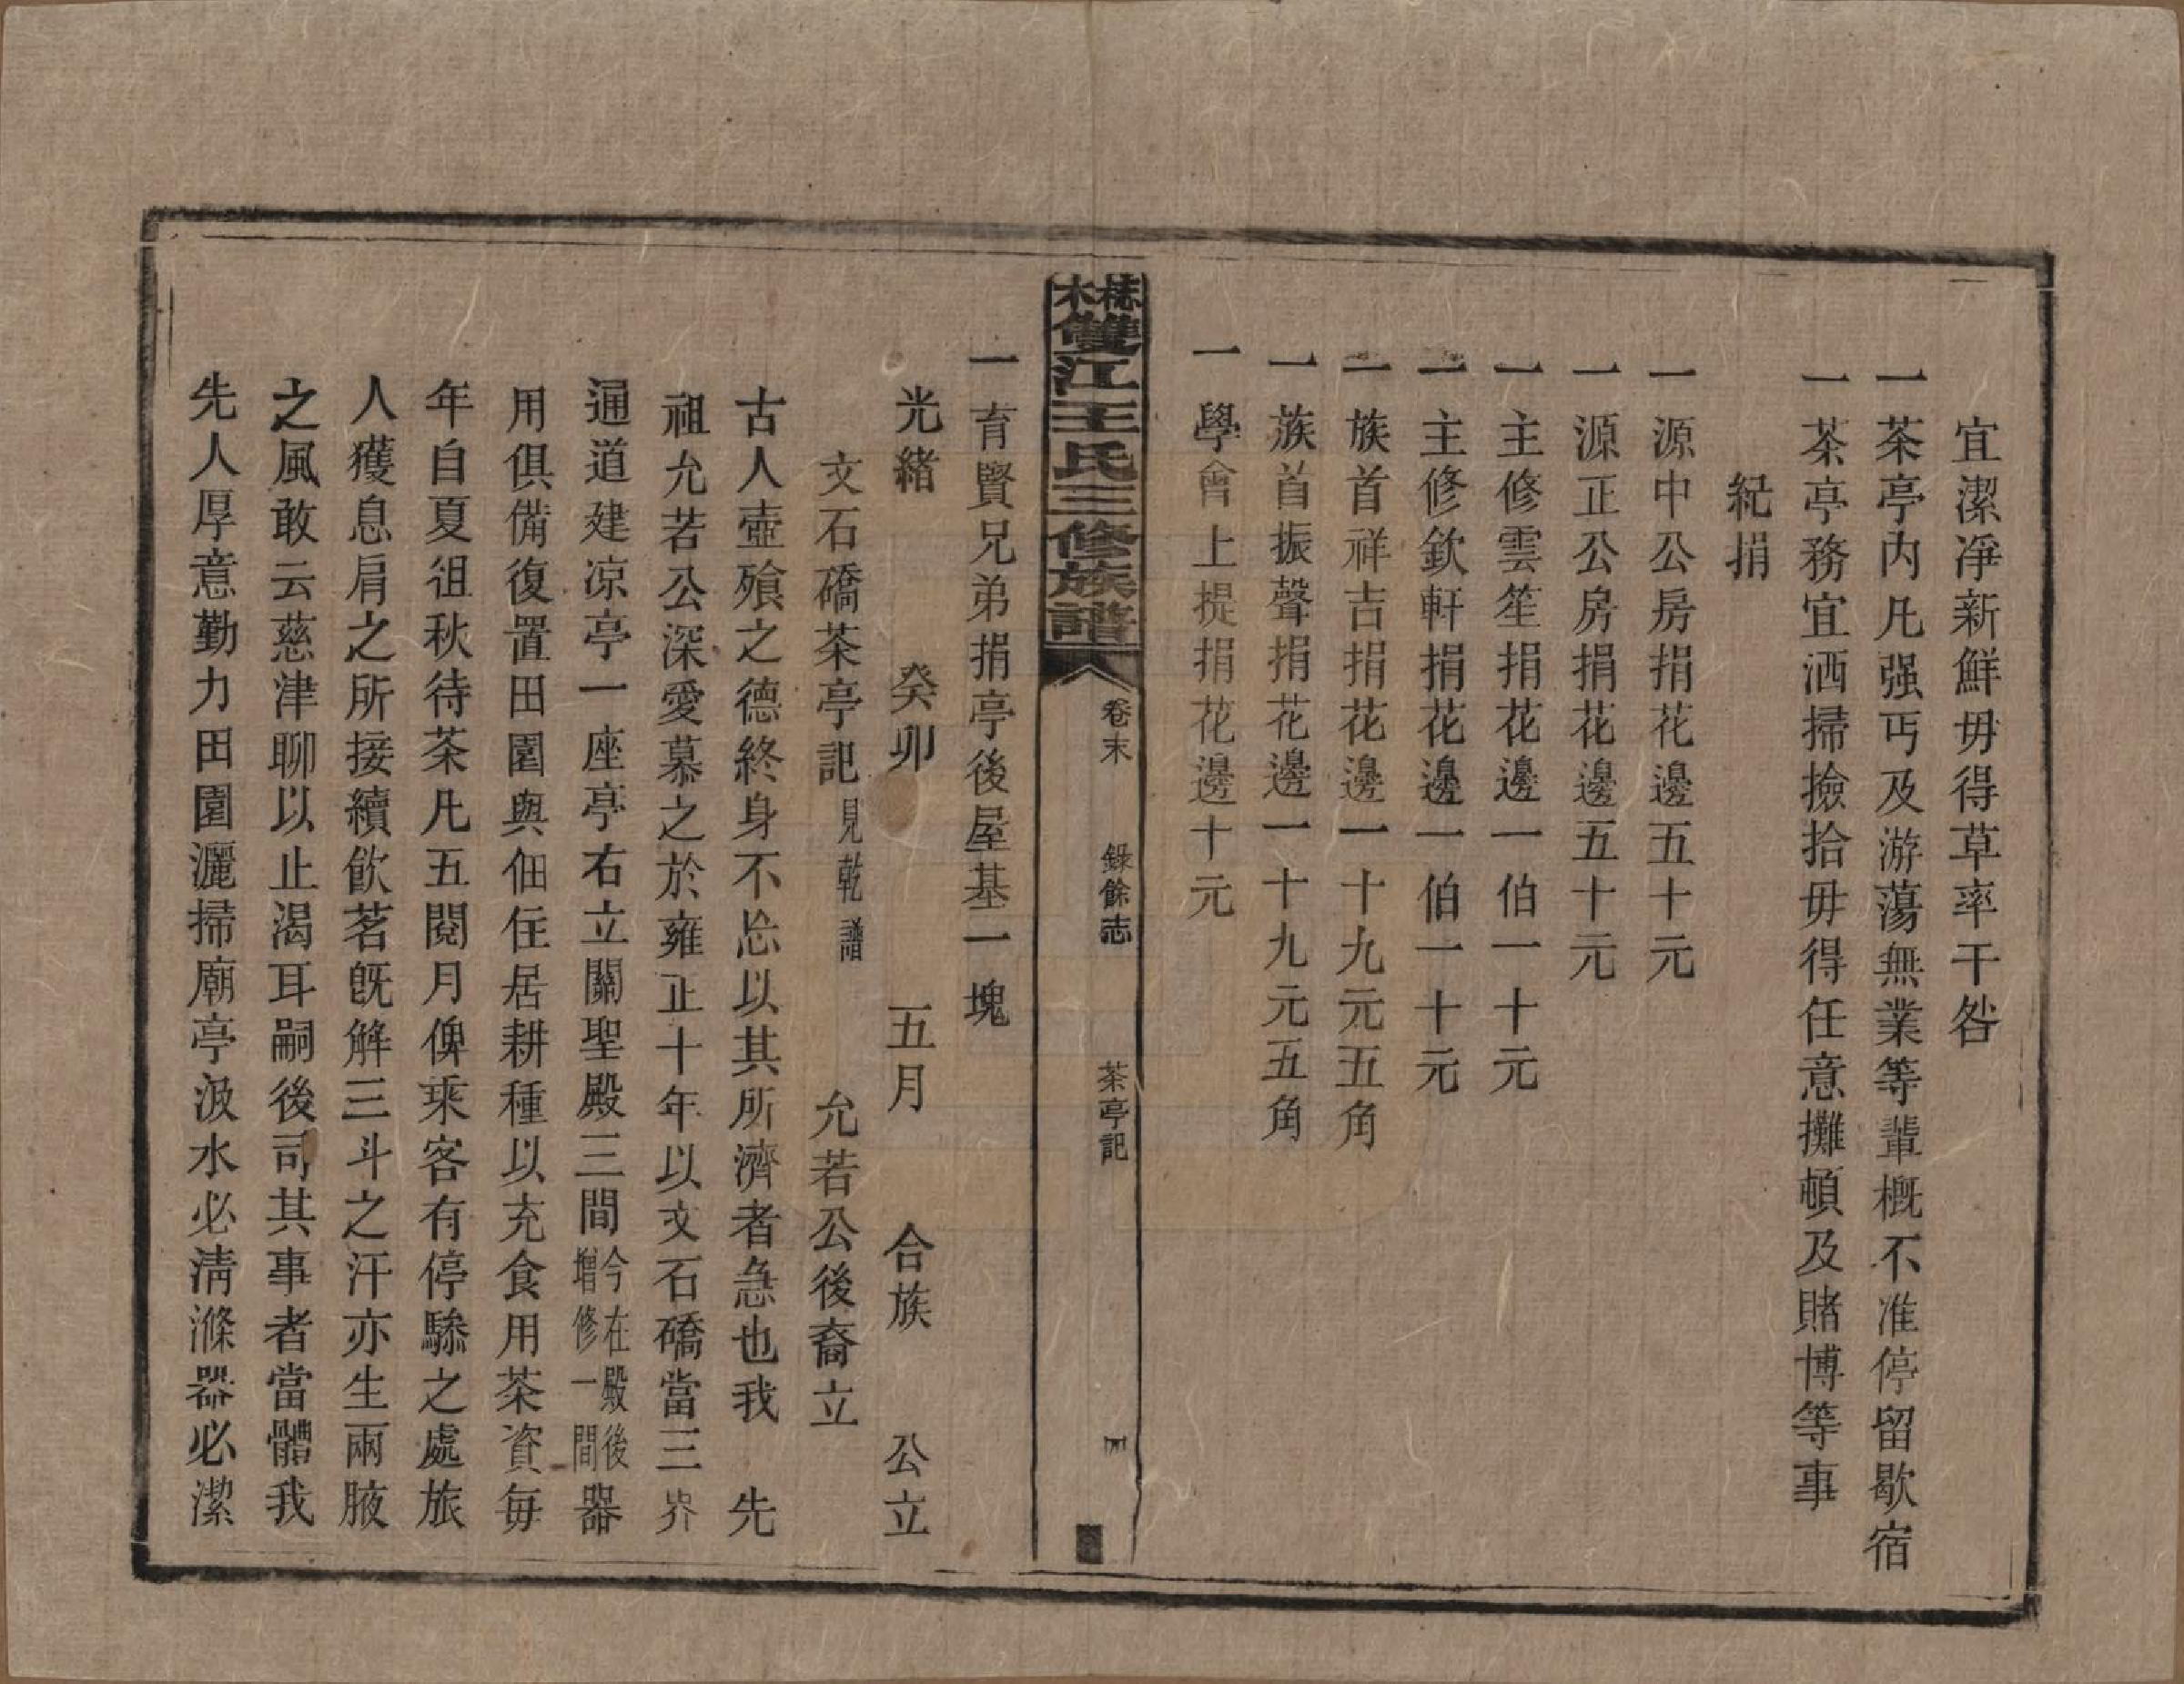 宜潔凈新鮮毋得草率干咎
一茶亭內凡强丐及游蕩無業等輩概不准停留歇宿
一茶亭務宜洒掃撿拾毋得任意攤頓及賭博等事
紀捐
一源中公房捐花邊五十元
一源正公房捐花邊五十元
一主修雲笙捐花邊一伯一十元
一主修欽軒捐花邊一伯一十元
一族首祥吉捐花邊一十九元五角
一族首振聲捐花邊一十九元五角
一學會上提捐花邊十元
樜木雙江王氏三修族譜 卷末 錄餘志 茶亭記 四
一育賢兄弟捐亭後屋基一塊
光緒 癸卯 五月 合族 公立
文石礄茶亭記見乾譜 允若公後裔立
古人壺飱之德終身不忘以其所濟者急也我 先
祖允若公深愛慕之於雍正十年以文石礄當三界
通道建凉亭一座亭右立關聖殿三間今在殿後增修一間器
用俱備復置田園與佃住居耕種以充食用茶資每
年自夏徂秋待茶凡五閱月俾乘客有停驂之處旅
人獲息肩之所接續飲茗旣解三斗之汗亦生兩腋
之風敢云慈津聊以止渴耳嗣後司其事者當體我
先人厚意勤力田園灑掃廟亭汲水必淸滌器必潔